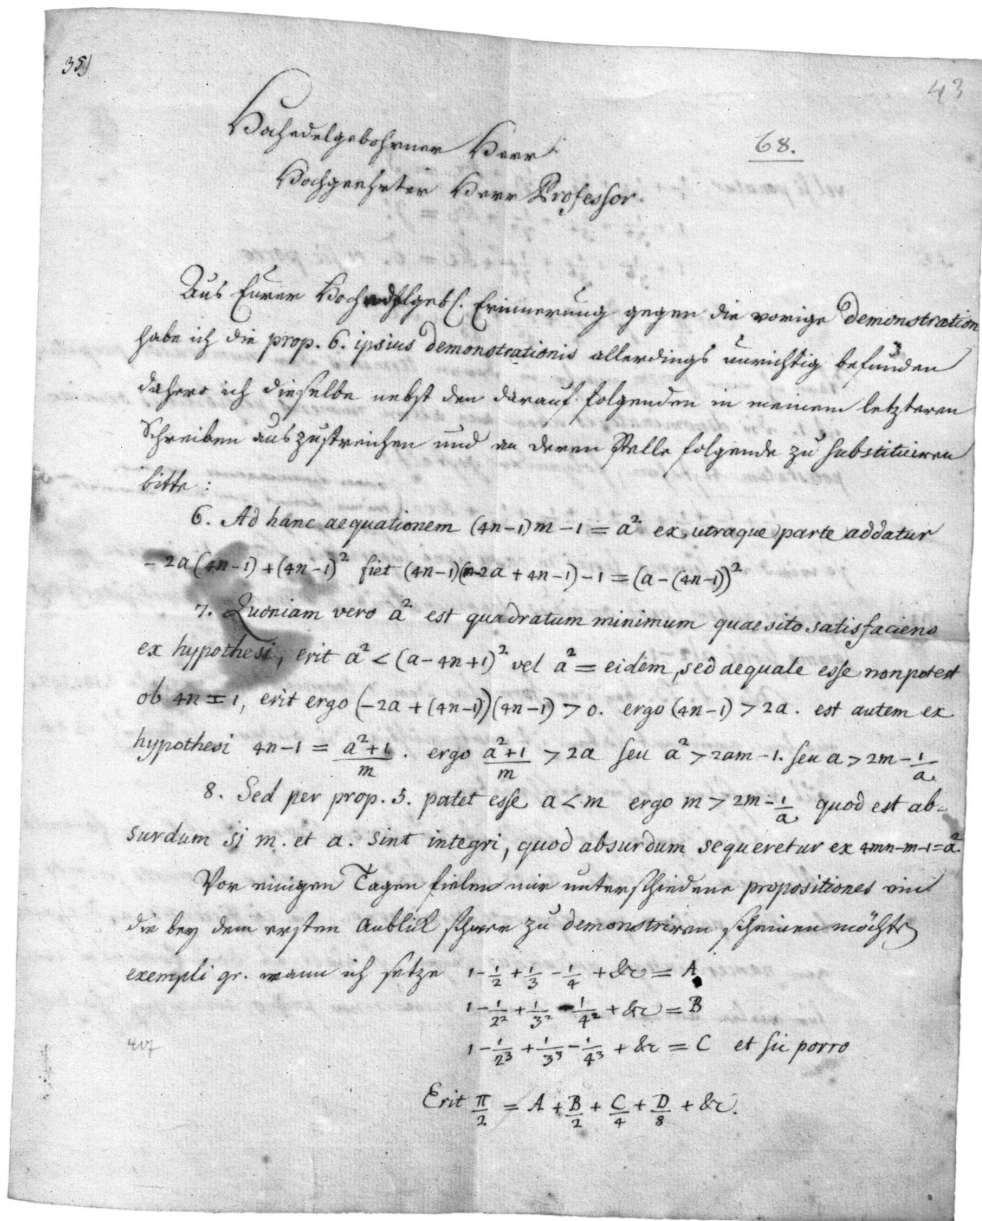 35)
43
68.
Hochedelgebohrner Herr
Hochgeehrter Herr Professor.
Aus Eurer Hochedelgeb. Erinnerung gegen die vorige demonstration
habe ich die prop. 6. ipsius demonstrationis allerdings unrichtig befunden
dahero ich dieselbe nebst den darauf folgenden in meinem letzteren
Schreiben auszustreichen und an deren Stelle folgende zu substituiren
bitte:
6. Ad hanc aequationem (4n-1)m-1 = a² ex utraque parte addatur
-2a(4n-1)+(4n-1)² fiet (4n-1)(m-2a+4n-1)-1 = (a-(4n-1))²
7. Quoniam vero a² est quadratum minimum quaesito satisfaciens
ex hypothesi, erit a² < (a-4n+1)² vel a² = eidem, sed aequale esse non potest
ob 4n ± 1, erit ergo (-2a+(4n-1))(4n-1) > 0. ergo (4n-1) > 2a. est autem ex
hypothesi 4n-1 = (a²+1)/m. ergo (a²+1)/m > 2a seu a² > 2am-1. seu a > 2m-1/a.
8. Sed per prop. 5. patet esse a < m ergo m > 2m-1/a quod est ab=
surdum si m. et a. sint integri, quod absurdum sequeretur ex 4mn-m-1=a².
Vor einigen Tagen fielen mir unterschiedene propositiones ein
die bey dem ersten Anblick schwer zu demonstriren scheinen möchten
exempli gr. wann ich setze 1-1/2+1/3-1/4+&c = A
1-1/2²+1/3²-1/4²+&c = B
1-1/2³+1/3³-1/4³+&c = C et sic porro
Erit π/2 = A+B/2+C/4+D/8+&c.